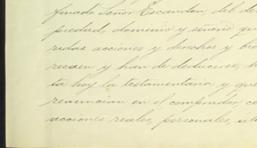 finado Señor Escandon, del do
piedad, dominio y señorio qu
ridas acciones y derechos y bie
recaen y han de deducirse, h
ta hoy la testamentaria, y que
renuncian en el comprador, co
acciones reales, personales, uti